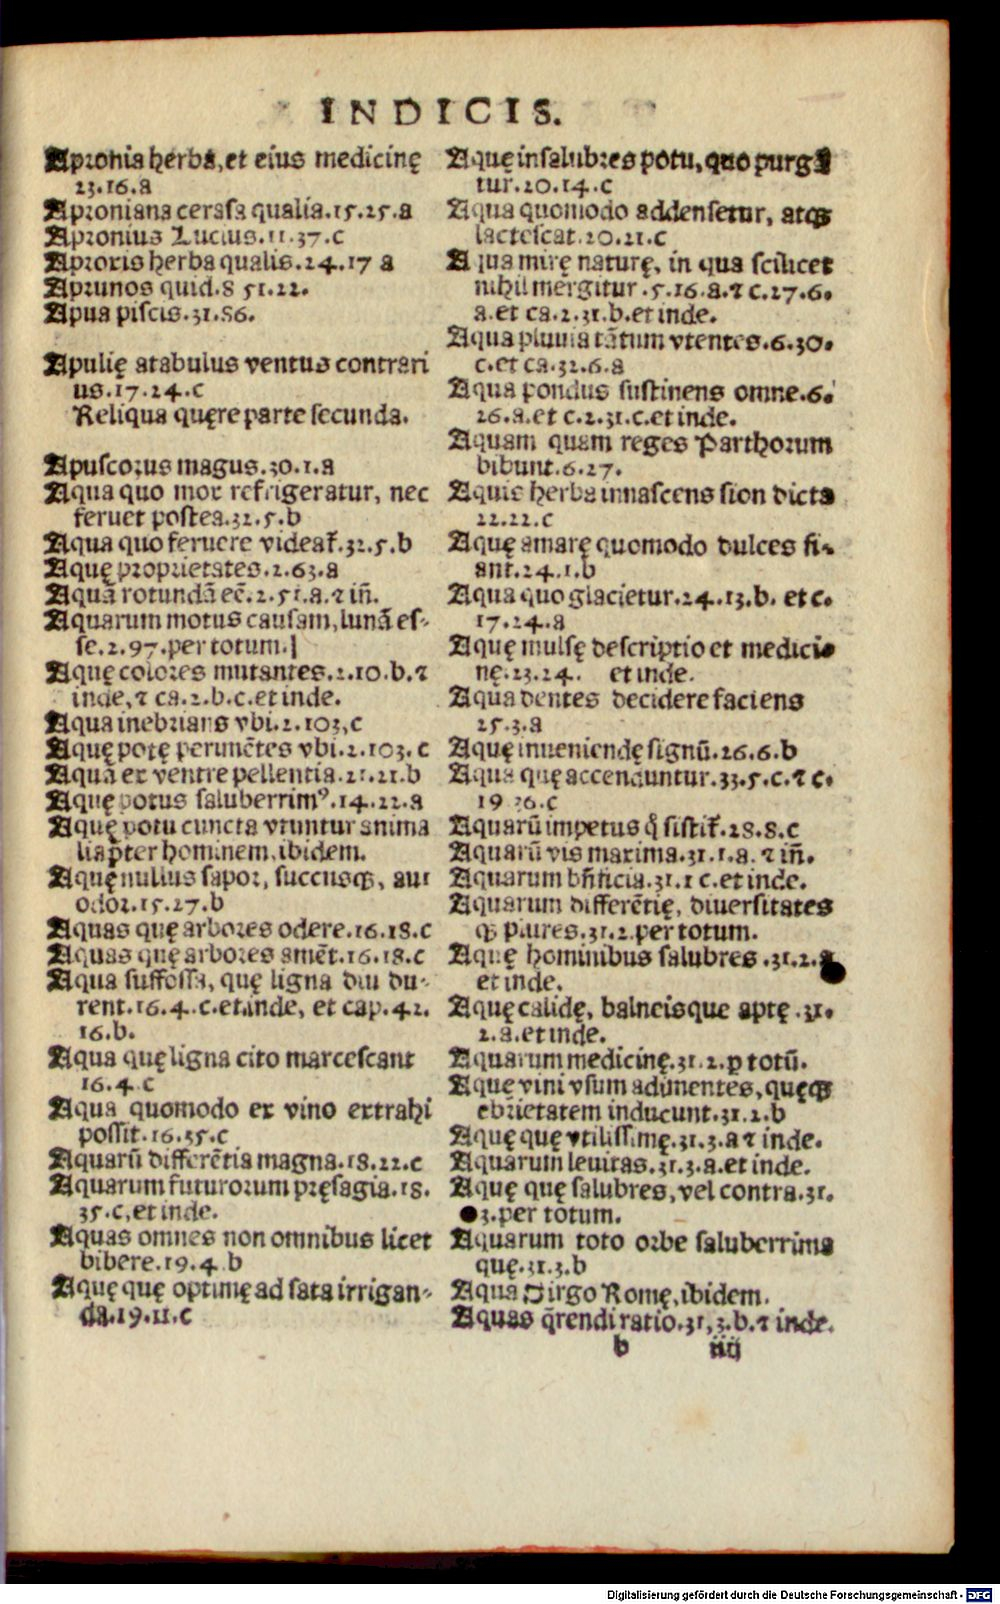 INDICIS.
Apronia herba, et eius medicinę
23.16.a
Aproniana cerasa qualia.15.25.a
Apronius Lucius.11.37.c
Aproxis herba qualis.24.17 a
Aprunos quid.8 51.22.
Apua piscis.31.S6.
Apulię atabulus ventus contrari
us.17.24.c
Reliqua quęre parte secunda.
Apuscorus magus.30.1.a
Aqua quo mox refrigeratur, nec
feruet postea.32.5.b
Aqua quo feruere videat̃.32.5.b
Aquę proprietates.2.63.a
Aquã rotundã eẽ.2.51.a.⁊ iñ.
Aquarum motus causam, lunã es-
se.2.97.per totum.
Aquę colores mutantes.2.10.b.⁊
inde, ⁊ ca.2.b.c.et inde.
Aqua inebrians vbi.2.103,c
Aquę potę perimẽtes vbi.2.103.c
Aquã ex ventre pellentia.21.21.b
Aquę potus saluberrimꝰ.14.22.a
Aquę potu cuncta vtuntur anima
lia p̃ter hominem, ibidem.
Aquę nullius sapor, succusqꝫ, aut
odor.15.27.b
Aquas quę arbores odere.16.18.c
Aquas quę arbores amẽt.16.18.c
Aqua suffossa, quę ligna diu du-
rent.16.4.c.et inde, et cap.42.
16.b.
Aqua quę ligna cito marcescant
16.4.c
Aqua quomodo ex vino extrahi
possit.16.35.c
Aquarũ differẽtia magna.18.22.c
Aquarum futurorum pręsagia.18.
35.c, et inde.
Aquas omnes non omnibus licet
bibere.19.4.b
Aquę quę optimę ad sata irrigan-
da.19.11.c
Aquę insalubres potu, quo purgã
tur.20.14.c
Aqua quomodo addensetur, atqꝫ
lactescat.20.21.c
Aqua mirę naturę, in qua scilicet
nihil mergitur.5.16.a.⁊ c.27.6.
a.et ca.2.31.b.et inde.
Aqua pluuia tãtum vtentes.6.30.
c.et ca.32.6.a
Aqua pondus sustinens omne.6.
26.a.et c.2.31.c.et inde.
Aquam quam reges Parthorum
bibunt.6.27.
Aquis herba innascens sion dicta
22.22.c
Aquę amarę quomodo dulces fi-
ant.24.1.b
Aqua quo glacietur.24.13.b. et c.
17.24.a
Aquę mulsę descriptio et medici-
nę.23.24. et inde.
Aqua dentes decidere faciens
25.3.a
Aquę inueniendę signũ.26.6.b
Aqua quę accenduntur.33.5.c.⁊ c.
19 36.c
Aquarũ impetus q̃ sistit̃.28.8.c
Aquarũ vis maxima.31.1.a.⁊ iñ.
Aquarum bñficia.31.1 c.et inde.
Aquarum differẽtię, diuersitates
qꝫ plures.31.2.per totum.
Aquę hominibus salubres.31.2.a
et inde.
Aquę calidę, balneisque aptę.31.
2.a.et inde.
Aquarum medicinę.31.2.ꝑ totũ.
Aquę vini vsum adimentes, quęqꝫ
ebrietatem inducunt.31.2.b
Aquę quę vtilissimę.31.3.a ⁊ inde.
Aquarum leuitas.31.3.a.et inde.
Aquę quę salubres, vel contra.31.
3.per totum.
Aquarum toto orbe saluberrima
quę.31.3.b
Aqua Virgo Romę, ibidem.
Aquas q̃rendi ratio.31,3.b.⁊ inde.
b iiij
Digitalisierung gefördert durch die Deutsche Forschungsgemeinschaft - DFG